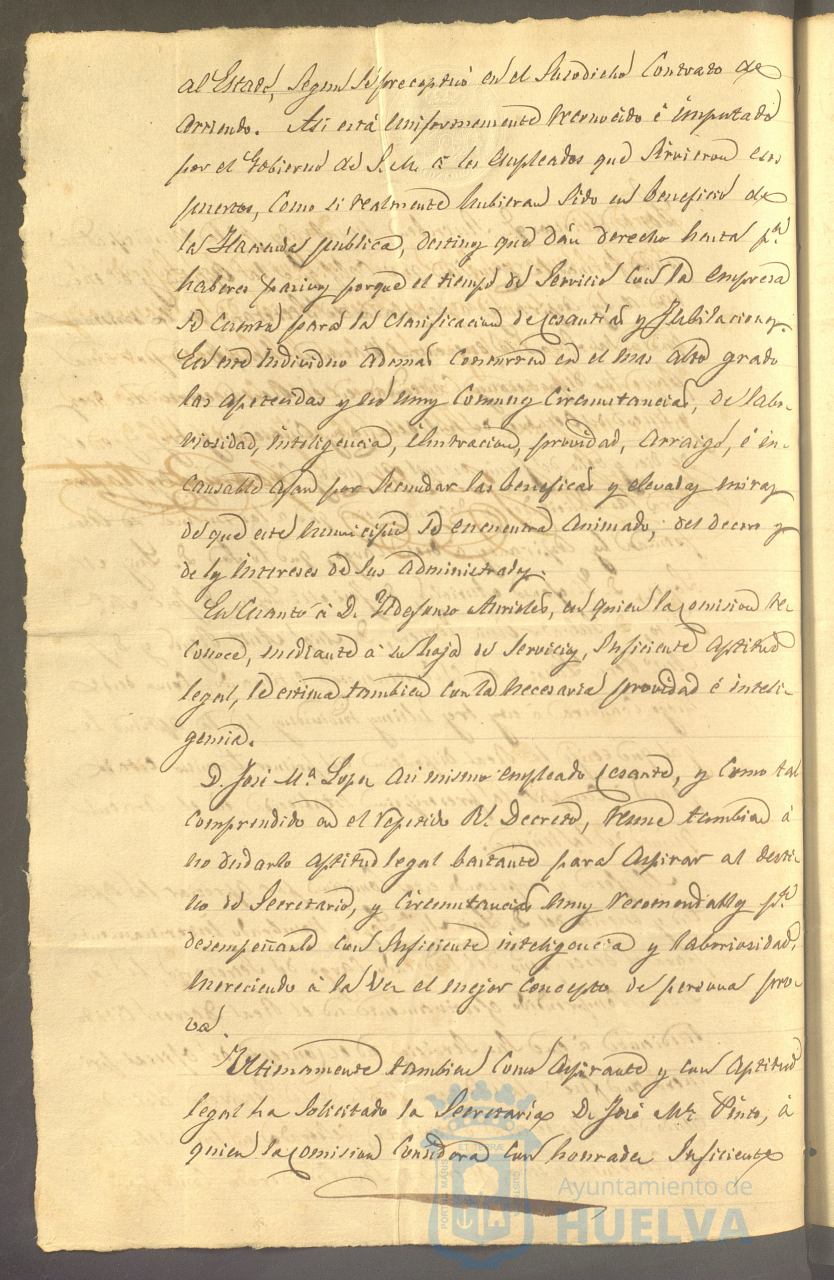 al Estado, segun se preceptuó en el susodicho Contrato de
arriendo. Asi está uniformemente reconocido é imputado
por el Gobierno de S. M. á los empleados que sirvieron esos
puertos, como si realmente hubieran sido en beneficio de
la Hacienda pública, destinos que dán derecho hasta pª
haberes pasivos porque el tiempo de servicio con la empresa
se cuenta para la clasificacion de cesantías y Jubilaciones.
En este individuo ademas concurren en el mas alto grado
las apetecidas y no muy comunes circunstancias, de labo-
riosidad, inteligencia, ilustracion, providad, arraigo, é in-
cansable afan por secundar las beneficas y elevadas miras
de que este municipio se encuentra animado, del decoro y
de los intereses de sus administrados.
En cuanto á D. Yldefonso Aurioles, en quien la Comision re-
conoce, mediante á su hoja de servicios, suficiente aptitud
legal, le estima tambien con la necesaria providad é inteli-
gencia.
D. José Mª Lopez asi mismo empleado cesante, y como tal
comprendido en el repetido Rl. Decreto, reune tambien á
no dudarlo aptitud legal bastante para aspirar al desti-
no de Secretario, y circunstancias muy recomendables pª
desempeñarlo con suficiente inteligencia y laboriosidad,
mereciendo á la vez el mejor concepto de persona pro-
va.
Ultimamente tambien como aspirante y con aptitud
legal ha solicitado la Secretaría D. José Mª Pinto, á
quien la Comision considera con honradez suficiente
Ayuntamiento de
HUELVA